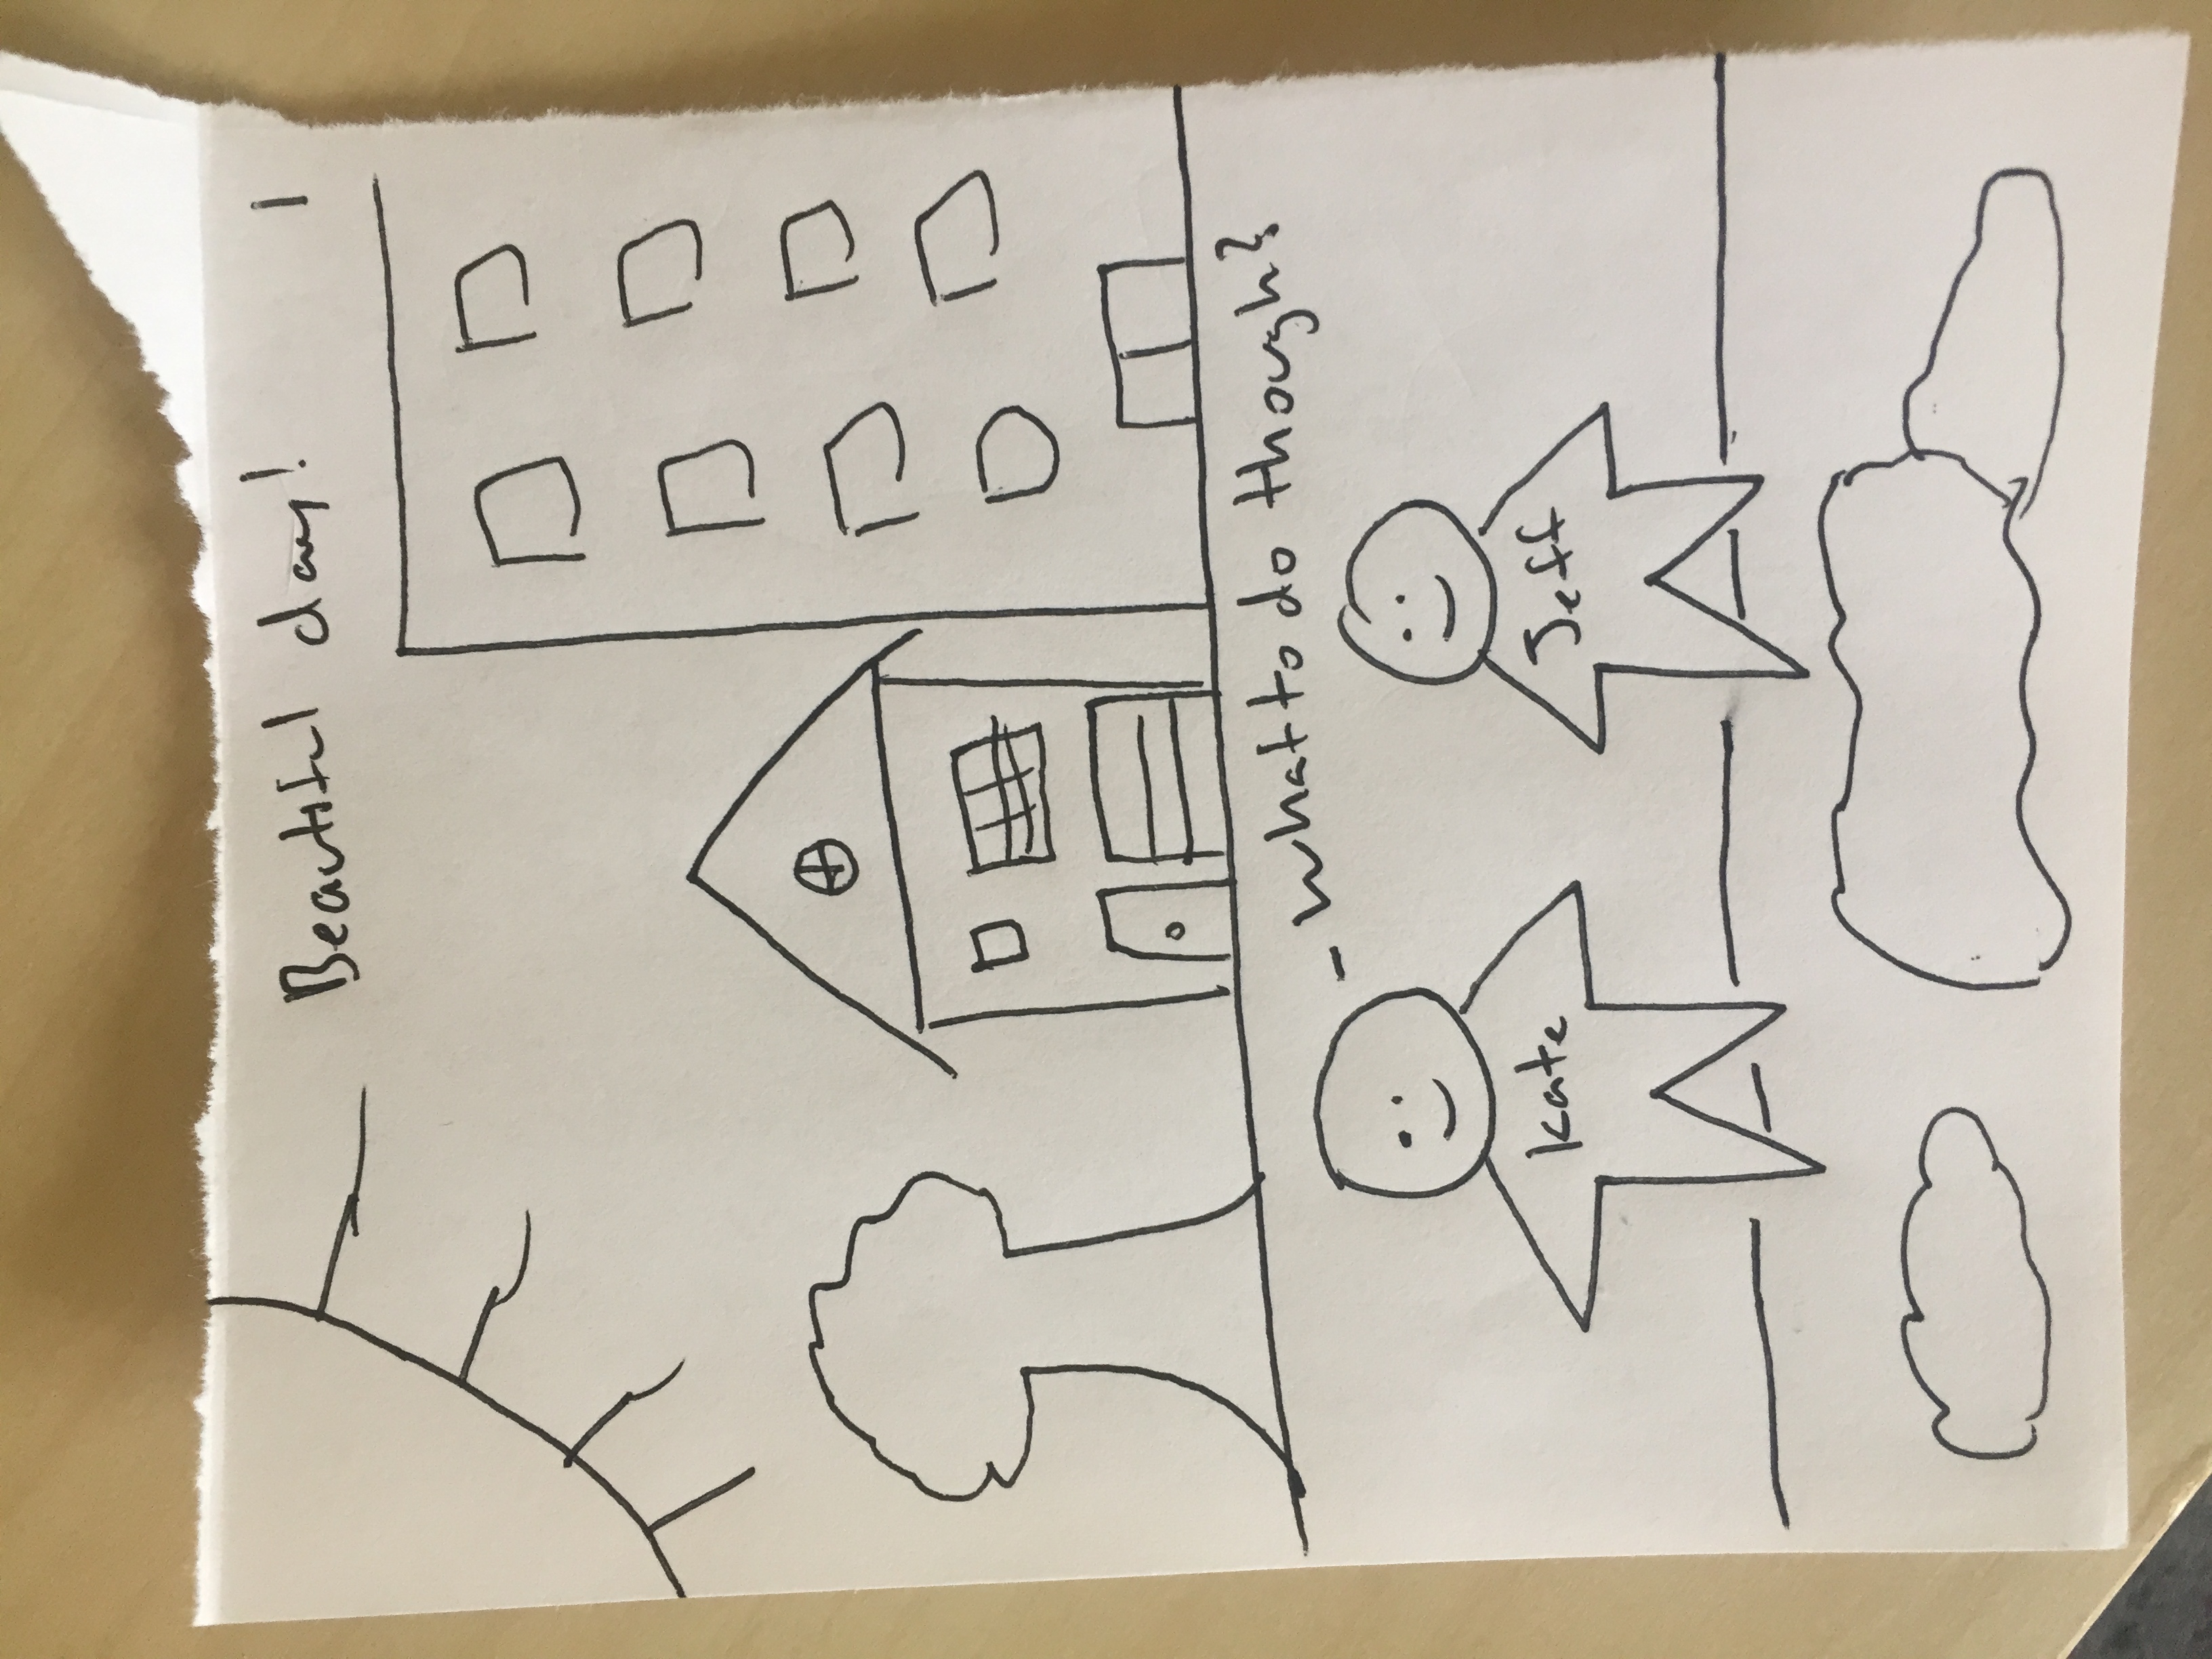 Beautiful day!
1
- what to do though?
Kate
Jeff